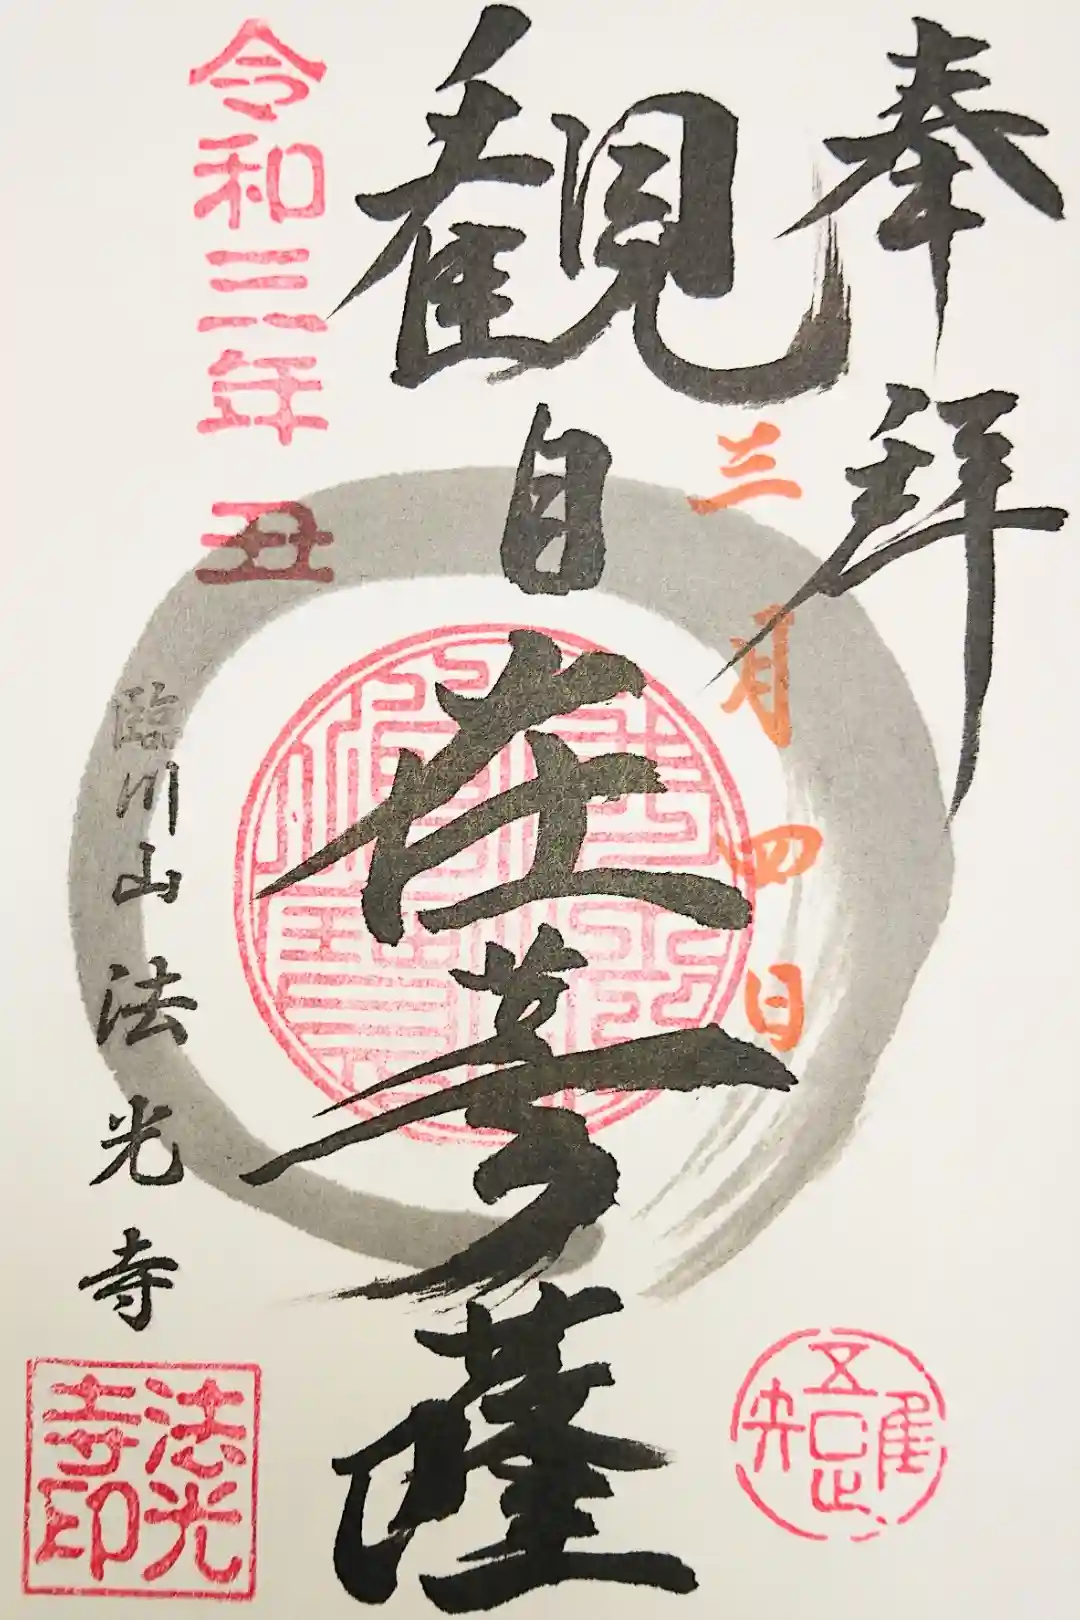 奉拜
三月四日
観自在菩薩
令和三年 丑
臨川山 法光寺
法光寺印
吾唯足知